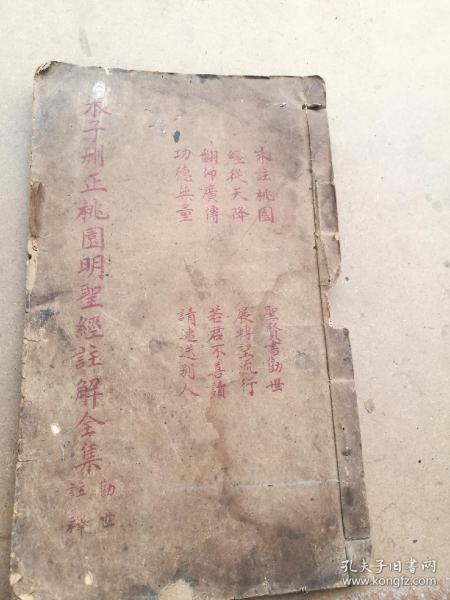 朱註桃園
經從天降
翻印廣傳
功德無量
聖賢書勸世
展轉望流行
若君不善讀
請速送別人
朱子刪正桃園明聖經註解全集
勸世
註釋
孔夫子旧书网
www.kongfz.com